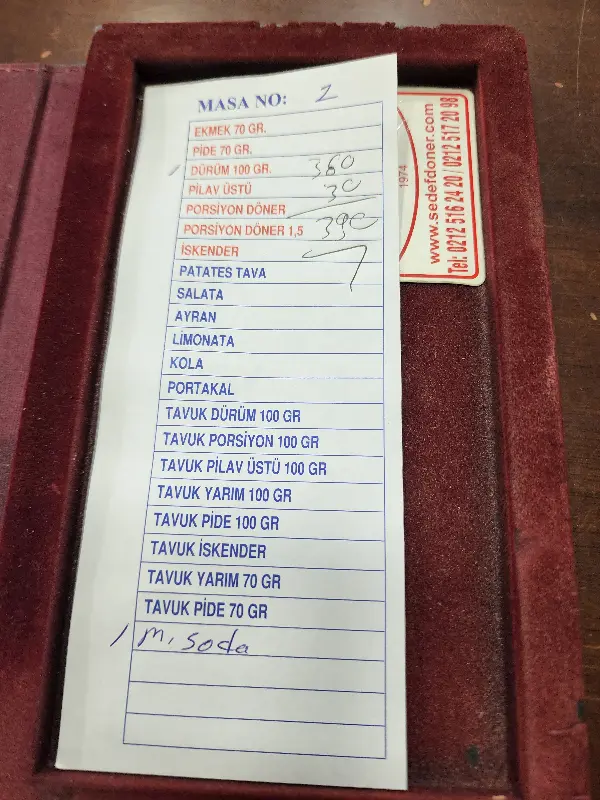 MASA NO: 2
EKMEK 70 GR.
PİDE 70 GR.
/ DÜRÜM 100 GR. 360
PİLAV ÜSTÜ 30
PORSİYON DÖNER
PORSİYON DÖNER 1,5 390
İSKENDER
PATATES TAVA
SALATA
AYRAN
LİMONATA
KOLA
PORTAKAL
TAVUK DÜRÜM 100 GR
TAVUK PORSİYON 100 GR
TAVUK PİLAV ÜSTÜ 100 GR
TAVUK YARIM 100 GR
TAVUK PİDE 100 GR
TAVUK İSKENDER
TAVUK YARIM 70 GR
TAVUK PİDE 70 GR
/ m. soda
1974
www.sedefdoner.com
Tel: 0212 516 24 20 / 0212 517 20 98